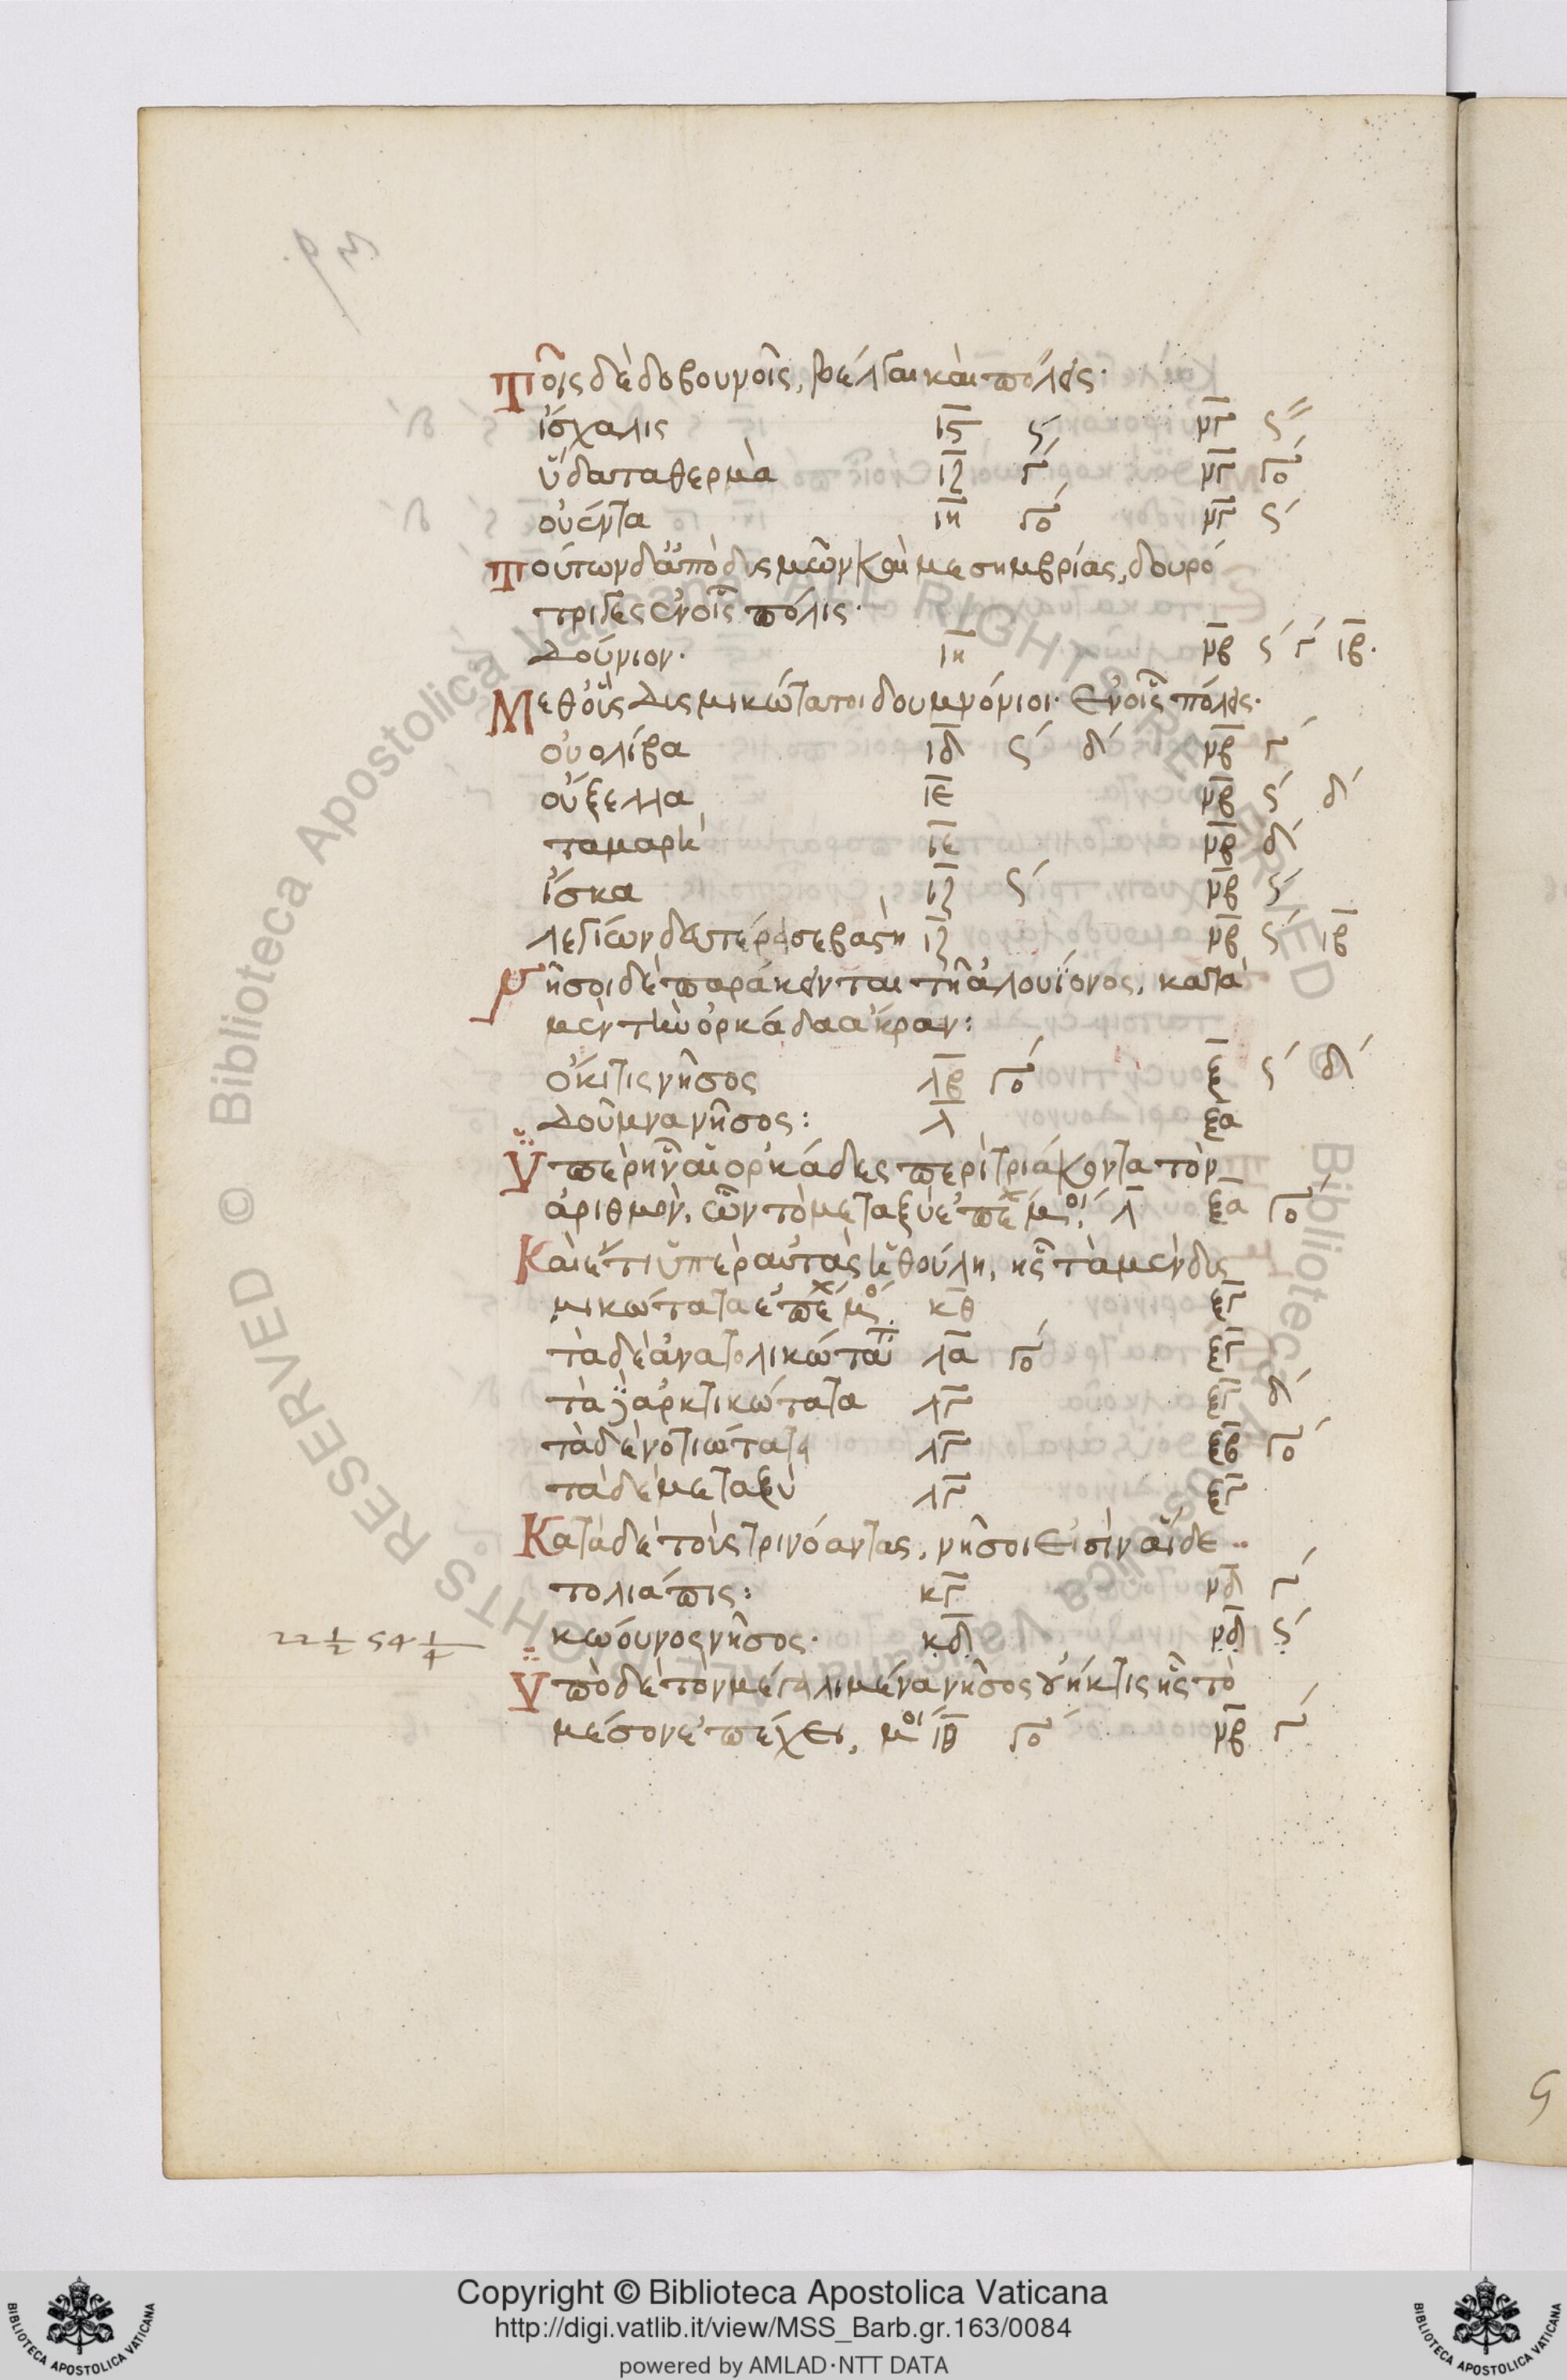 Τοῖς δὲ δοβουνοῖς, βέλγαι καὶ πόλεις·
ἴσχαλις ις ϛʹ νγ ϛʺ
ὕδατα θερμὰ ιζ γʹ νγ γοʹ
οὐέντα ιη γοʹ νγ ϛʹ
Τούτων δ' ἀπὸ δυσμῶν καὶ μεσημβρίας, δουρό
τριγες ἐν οἷς πόλις·
Δούνιον· ιη νβ ϛʹ γʹ ιβ·
Μεθ' οὓς δυσμικώτατοι δουμνόνιοι· ἐν οἷς πόλεις·
οὐολίβα ιδ ϛʹ δʹ νβ γʹ
οὔξελλα ιε νβ ϛʹ δʹ
ταμαρὴ ιε νβ δʹ
ἴσκα ιζ ϛʹ νβ ϛʹ
λεγίων δευτέρα σεβαστὴ ιζ νβ ϛʹ ιβ
Νῆσοι δὲ παράκεινται τῇ ἀλουΐονος, κατὰ
μὲν τὴν ὀρκάδα ἄκραν:
ὄκιτις νῆσος λβ γοʹ ξ ϛʹ δʹ
Δοῦμνα νῆσος: λ ξα
Ὑπὲρ ἣν αἱ ὀρκάδες περὶ τριάκοντα τὸν
ἀριθμὸν, ὧν τὸ μεταξὺ ἐπέχ μοί λ ξα γοʹ
Καὶ ἔτι ὑπὲρ αὐτὰς ἡ θούλη, ἧς τὰ μὲν δυσ
μικώτατα ἐπέχ μο κθ ξγ
τὰ δὲ ἀνατολικώτατ λα γοʹ ξγ
τὰ δ ἀρκτικώτατα λγ ξγ δʹ
τὰ δὲ νοτιώτατα λγ ξβ γοʹ
τὰ δὲ μεταξὺ λγ ξγ
Κατὰ δὲ τοὺς τρινόαντας, νῆσοι εἰσὶν αἵδε··
τολιάπις: κγ νδ γʹ
22 1/2 54 1/4 κωόυνος νῆσος· κδ νδ ϛʹ
Ὑπὸ δὲ τὸν μέγα λιμένα νῆσος οὐήκτις ἧς τὸ
μέσον ἐπέχει, μοί ιθ γοʹ νβ γʹ
Copyright © Biblioteca Apostolica Vaticana
http://digi.vatlib.it/view/MSS_Barb.gr.163/0084
powered by AMLAD·NTT DATA